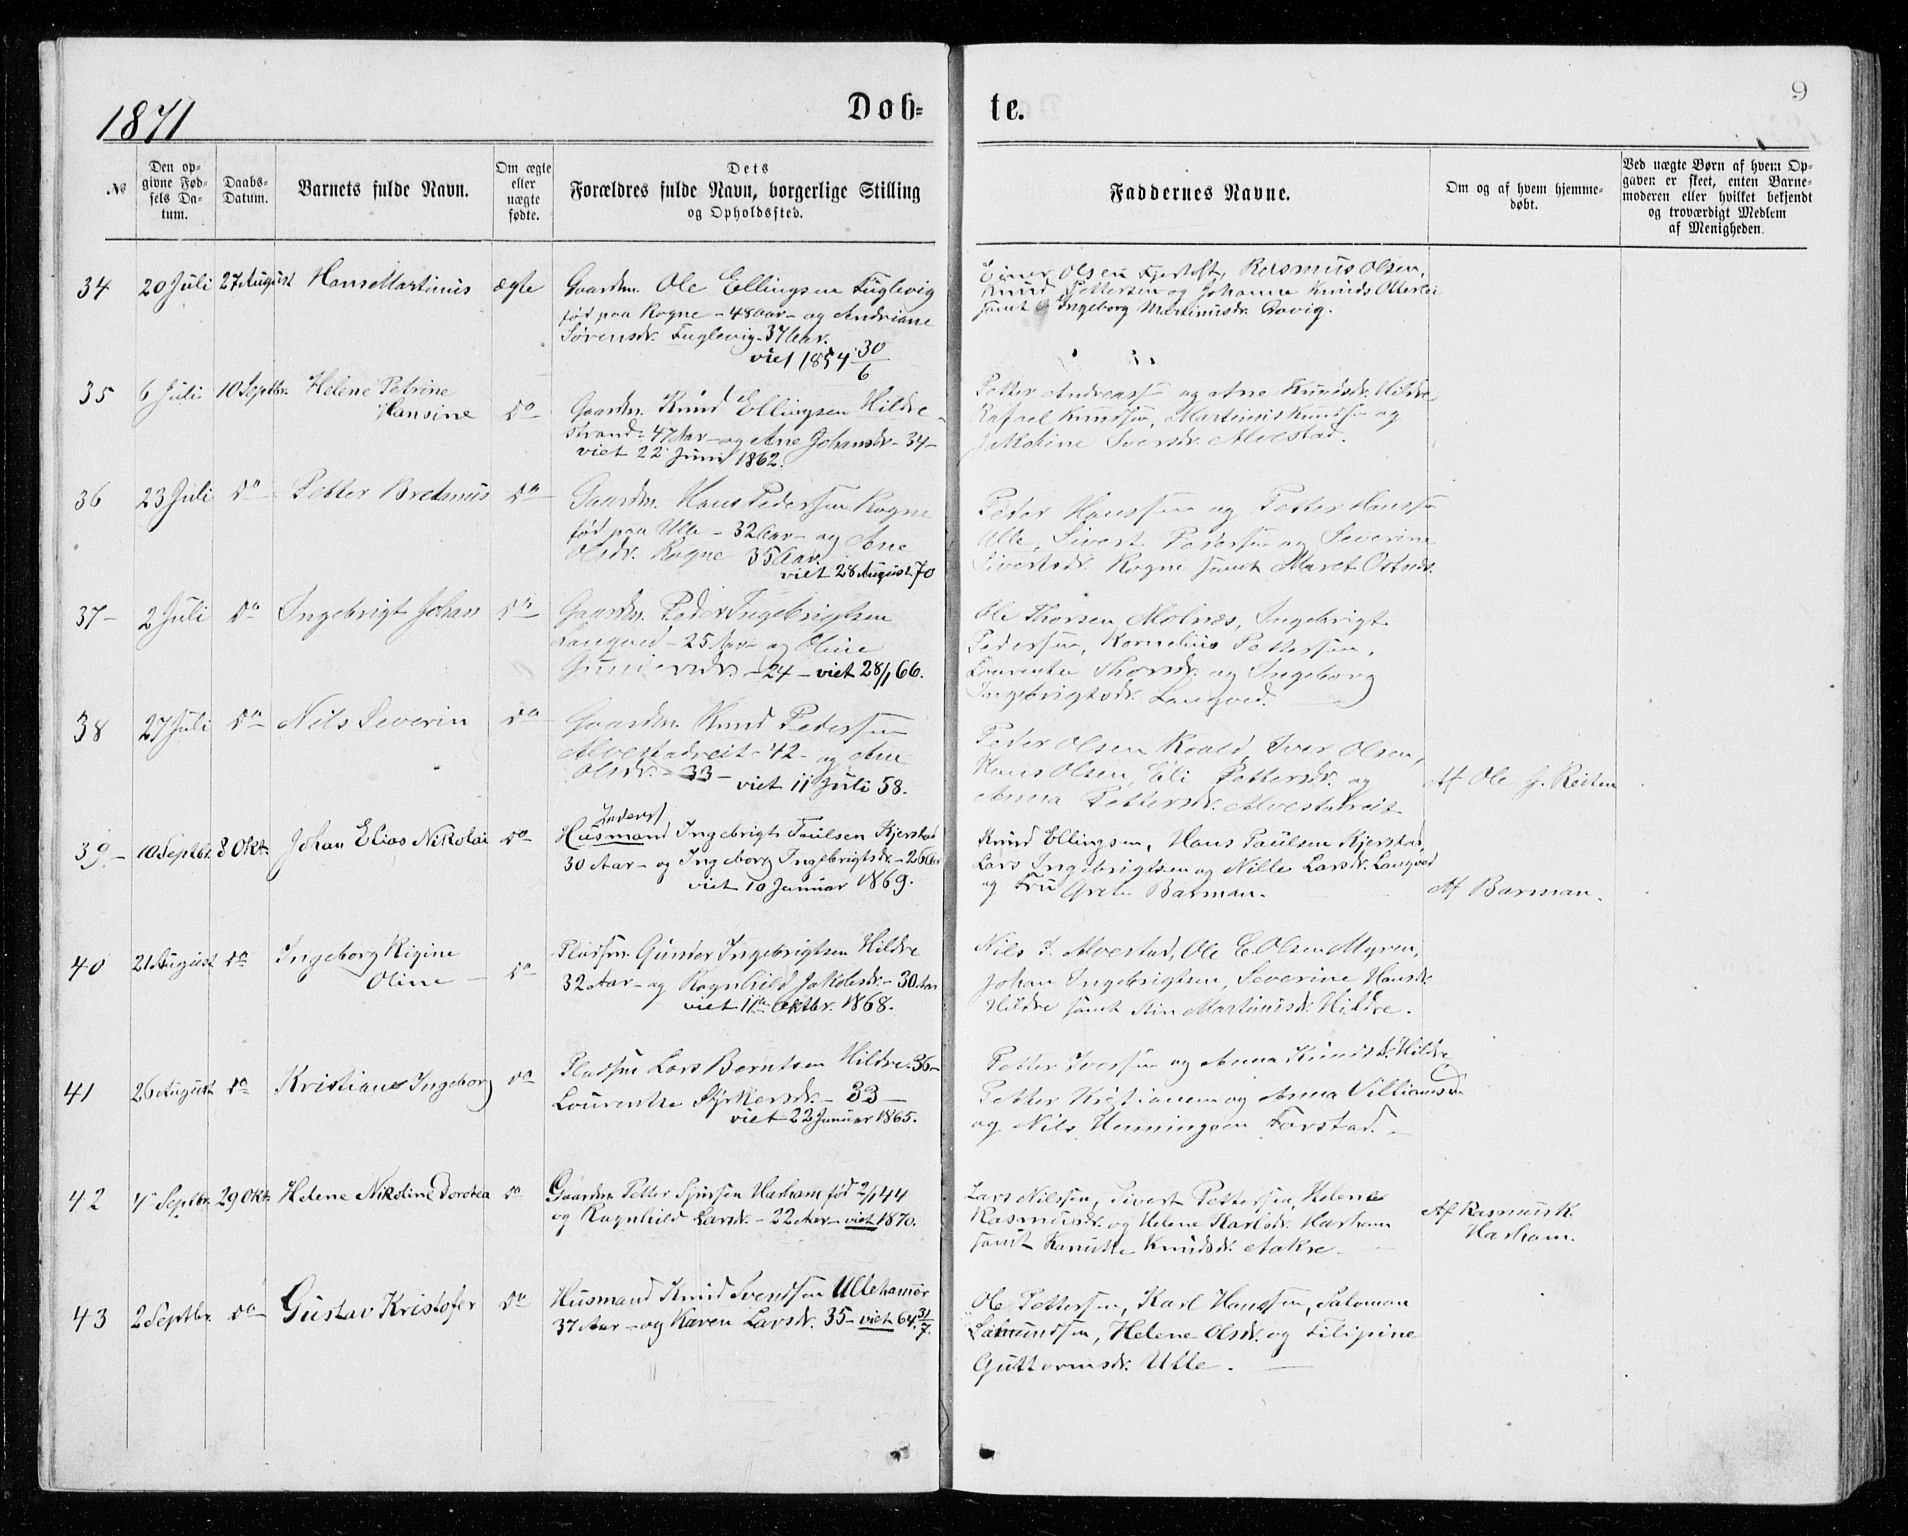 1871
Døb-
te.
9
№
Den op-
givne Fød-
sels Da-
tum.
Daabs-
Datum.
Barnets fulde Navn.
Om ægte
eller
uægte
fødte.
Dets
Forældres fulde Navn, borgerlige Stilling
og Opholdssted.
Faddernes Navne.
Om og af hvem hjemme-
døbt.
Ved uægte Børn af hvem Op-
gaven er skeet, enten Barne-
moderen eller hvilket bekjendt
og troværdigt Medlem
af Menigheden.
34 20 Juli 27 August Hans Martinus ægte
Gaardm. Ole Ellingsen Fuglevig
født paa Rogne - 48 Aar - og Andriane
Sørensdr. Fuglevig - 37 Aar.
viet 1854 30/6
Olsen Fjertoft, Rasmus Olsen,
Knud Pettersen og Johanne Knudsd. Otterlei
samt Ingeborg Martinusdr. Rovig.
35 6 Juli 10 Septbr. Helene Petrine
Hansine do
Gaardm. Knud Ellingsen Hildre-
strand - 47 Aar - og Ane Johansdr. - 34 -
viet 22 Juni 1862.
Petter Andreass. og Ane Knudsdr. Hildre
Rafael Knudsen, Martinus Knudsen og
Iversdr. Alvestad.
36 23 Juli do Petter Bretanus do
Gaardm. Hans Pedersen Rogne
født paa Ulle - 32 Aar - og Ane
Olsdr. Rogne 35 Aar.
viet 28 August 70
Peder Hanssen og Petter Hanssen
Ulle, Sivert Pedersen og Severine
Sivertsdr. Rogne samt Maret
37 - 2 Juli do Ingebrigt Johan do
Gaardm. Peder Ingebrigtsen
Langved - 25 Aar - og Oline
- 24 - viet 28/1 66.
Ole Thorsen Molnes, Ingebrigt
Pedersen, Kornelius Pettersen,
Laurentse Thorsdr. og Ingeborg
Ingebrigtsdr. Langved.
38 27 Juli do Nils Severin do
Gaardm. Knud Pedersen
Alvestadreit - 42 - og Ane
Olsdr. - 33 -
viet 11 Juli 58.
Peder Olsen Roald, Iver Olsen,
Hans Olsen, Eli Pettersdr. og
Anna Pettersdr. Alvestadreit
Af Ole J. Reiten
39 - 10 Septbr. 8 Okt. Johan Elias Nikolai do
Inderst
Husmand Ingebrigt Paulsen Kjerstad
30 Aar - og Ingeborg Ingebrigtsdr. - 26 Aar
viet 10 Januar 1869.
Knud Ellingsen, Hans Paulsen Kjerstad,
Lars Ingebrigtsen og Nille Larsdr. Langved
og Fru Grete Barman.
Af Barman.
40 21 August do Ingeborg Rigine
Oline - do
Pladsm. Gunder Ingebrigtsen Hildre
32 Aar - og Ragnhild Jakobsdr. - 30 Aar
viet 11te Oktbr. 1868.
Nils P. Alvestad, Ole E. Olsen Myren,
Johan Ingebrigtsen, Severine Hansdr.
Hildre samt Martinusdr. Hildre.
41 26 August do Kristiane Ingeborg do
Pladsm. Lars Berntsen Hildre - 36 -
Lourentse Styrkersdr. - 33 -
viet 22 Januar 1865.
Petter Iversen og Anna Knudsdr. Hildre
Petter Kristiansen og Anna Villiamsdr.
og Nils Henningsen Farstad. -
42 4de Septbr. 29 Okt. Helene Nikoline Dorotea do
Gaardm. Petter Sjursen Harham født 2/1 44
og Ragnhild Larsdr. - 22 Aar - viet 1870.
Lars Nilssen, Sivert Pettersen, Helene
Rasmusdr. og Helene Karlsdr. Harham
samt Knudsdr. Aakre -
Af Rasmus K.
Harham.
43 2 Septbr. do Gustav Kristofer do
Husmand Knud Svendsen Ullehamer
37 Aar - og Karen Larsdr. 35 - viet 64 31/7.
Ole Pettersen, Karl Hanssen, Salomon
Hansen, Helene Olsdr. og Filipine
Guttormsdr. Ulle.